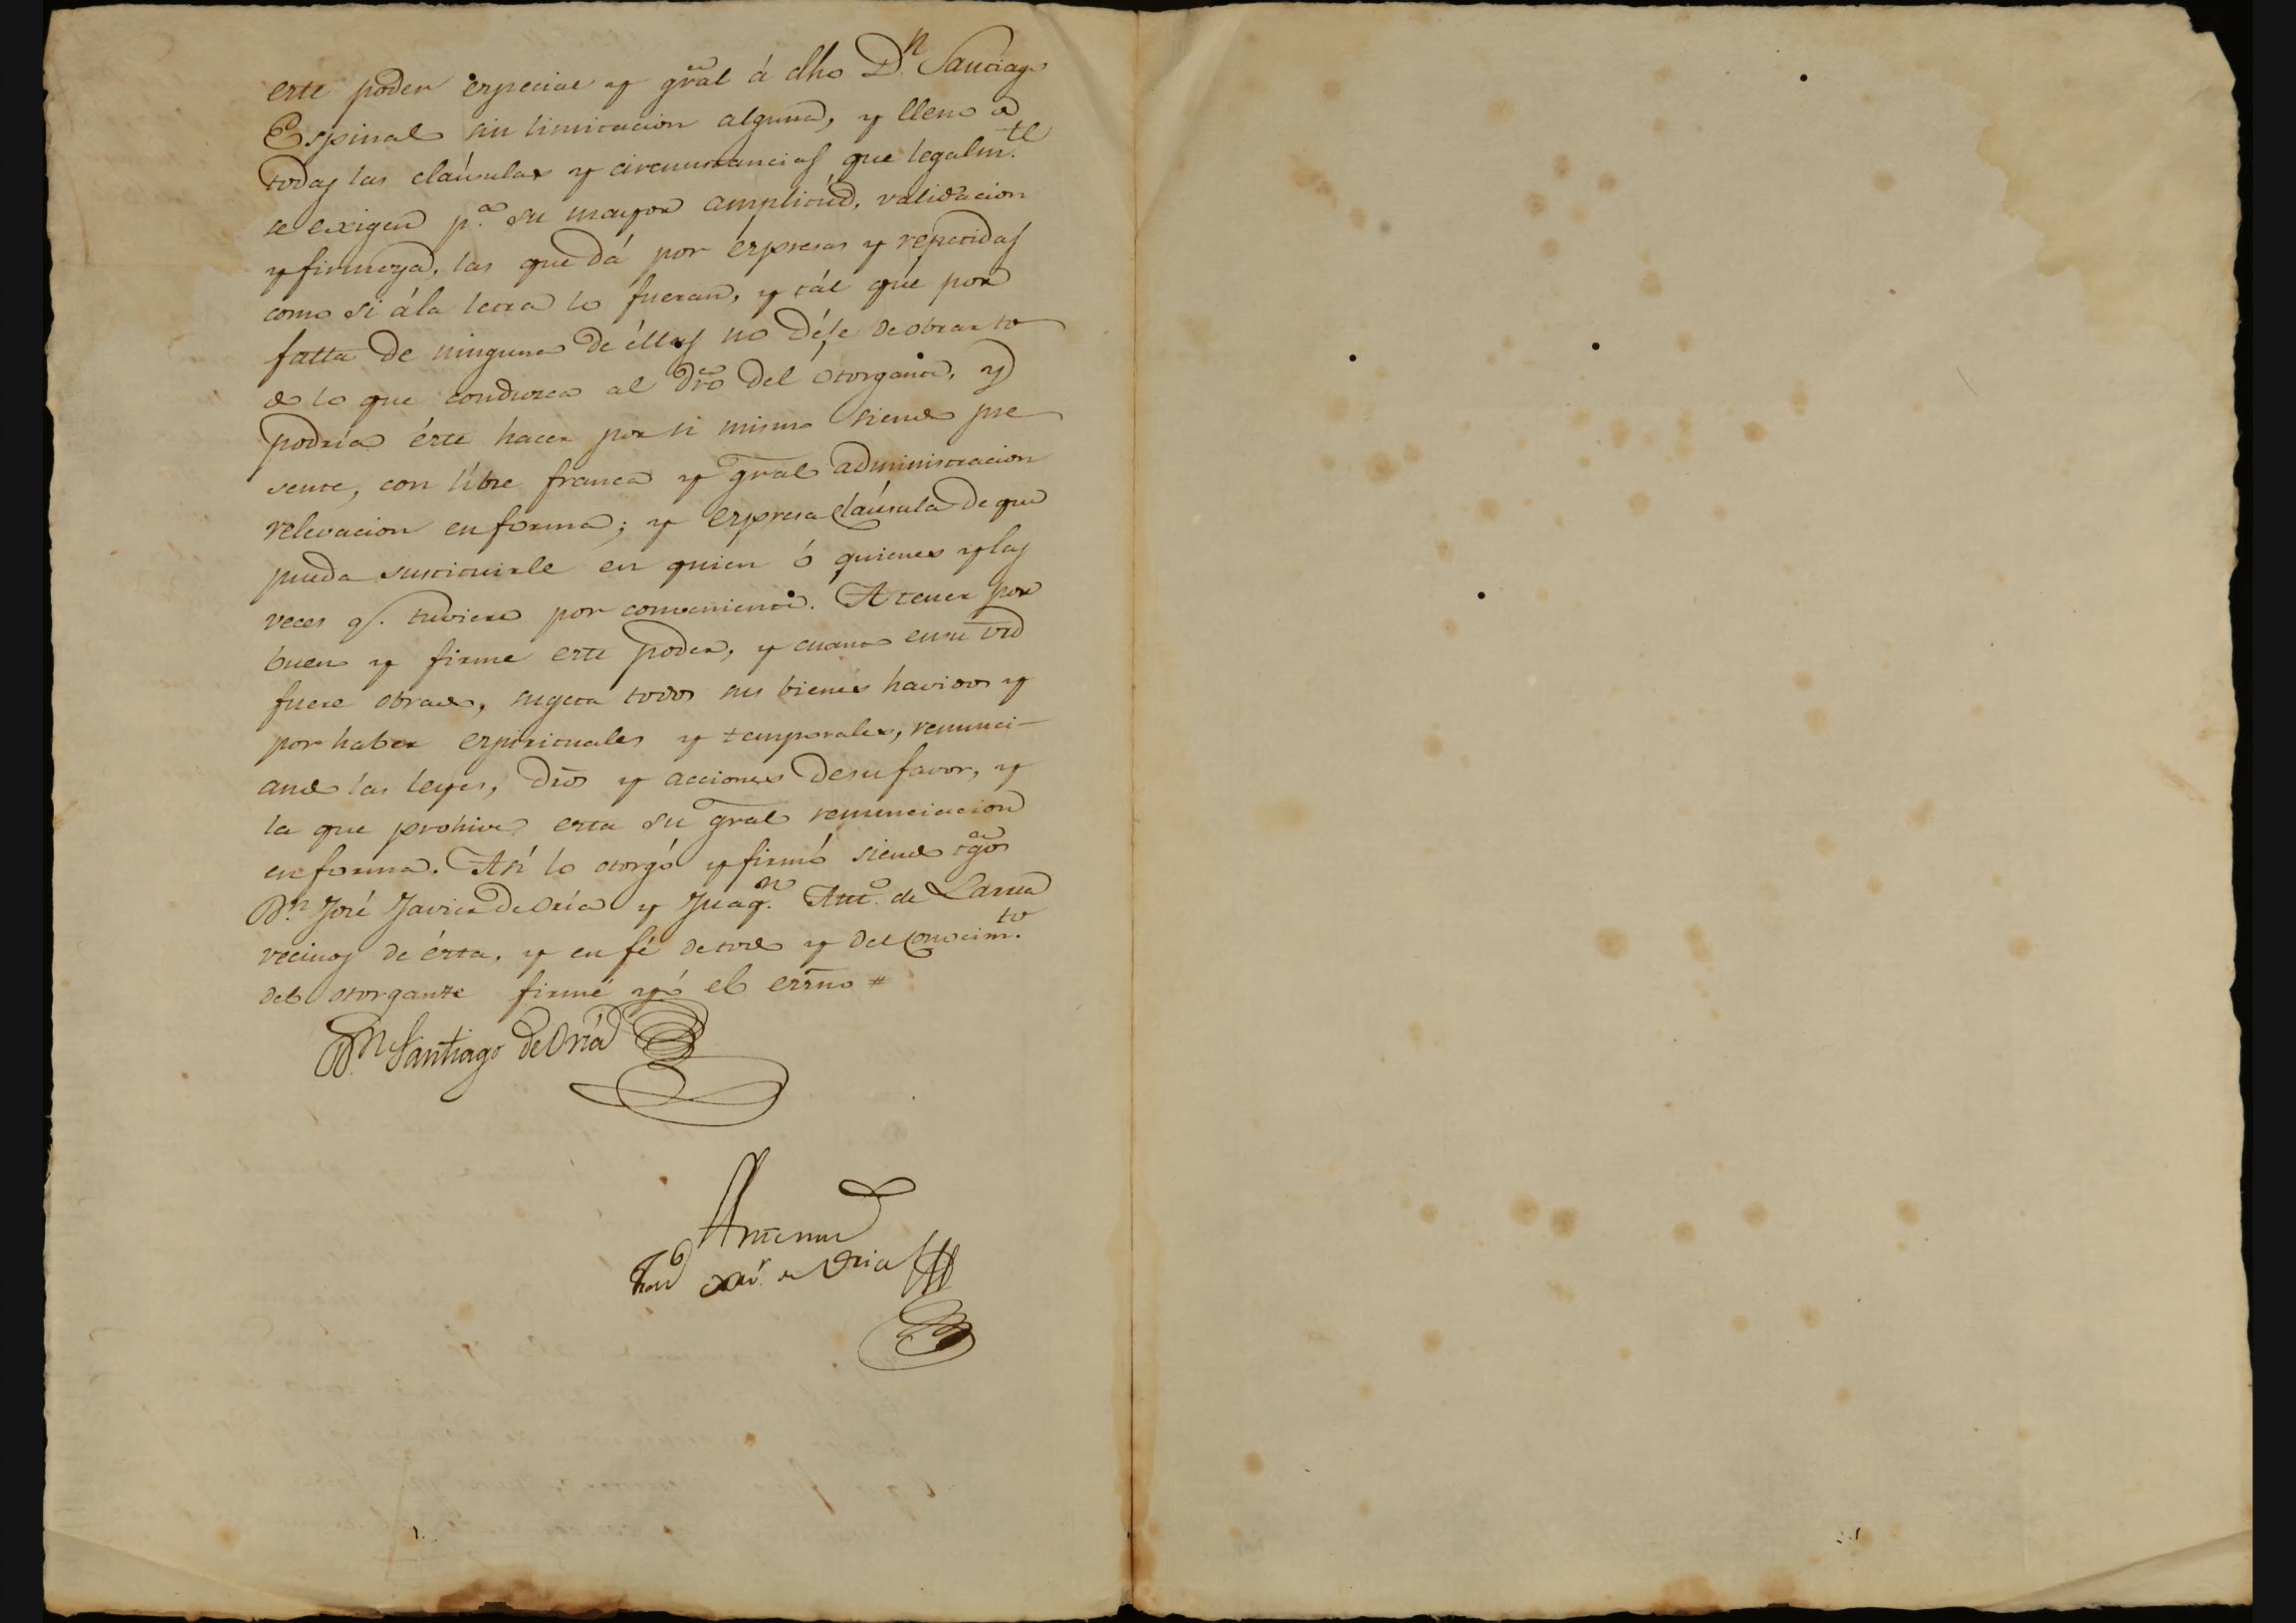 este poder especial y gral á dho D.n Santiago
Espinal sin limitacion alguna, y lleno de
todas las cláusulas y circunstancias que legalm.te
se exigen p.a su mayor amplitúd, validacion
y firmeza, las que dá por espresas y repetidas
como si á la letra lo fueran, y tál que por
falta de ninguna de éllas no déje de obrar to
do lo que conduzca al dro del otorgante, y
podria éste hacer por si mismo siendo pre
sente, con libre franca y gral administracion
relevacion en forma; y espresa cláusula de que
pueda sustituirle en quien ó quienes y las
veces q.e tubiere por conveniente. A tener por
buen y firme este poder, y cuanto en su vrd
fuere obrado, sugeta todos sus bienes havidos y
por haber espirituales y temporales, renunci-
ando las leyes, dros y acciones de su favor, y
la que prohive esta su gral renunciacion
en forma. Así lo otorgó y firmó siendo tgos
D.n José Javier de Oria y Juaq.n Ant.o de Larrea
vecinos de ésta, y en fé de todo y del conocim.to
del otorgante firmé yó el essno #
D.n Santiago de Oria
Antemi
Xav.r de Oria